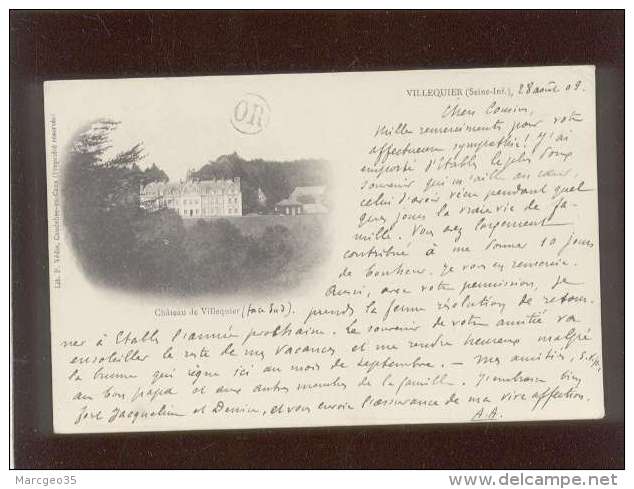 VILLEQUIER (Seine-Inf.), 28 août 09.
Chers Cousins,
Mille remerciements pour votre
affectueuse sympathie ! J'ai
emporté d'Etables le plus doux
souvenir qui m'aille au cœur,
celui d'avoir vécu pendant quel
ques jours la vraie vie de fa-
mille. Vous avez largement
contribué à me donner 10 jours
de bonheur. Je vous en remercie.
Aussi, avec votre permission, je
Château de Villequier (face Sud). prends la ferme résolution de retour-
ner à Etables l'année prochaine. Le souvenir de votre amitié va
ensoleiller le reste de mes vacances et me rendre heureux malgré
la brume qui règne ici au mois de septembre. — Mes amitiés, s.v.p.,
au bon papa et aux autres membres de la famille. J'embrasse bien
fort Jacqueline et Denise, et vous envoie l'assurance de ma vive affection.
A.A.
OR
Marcgeo35
delcampe.net